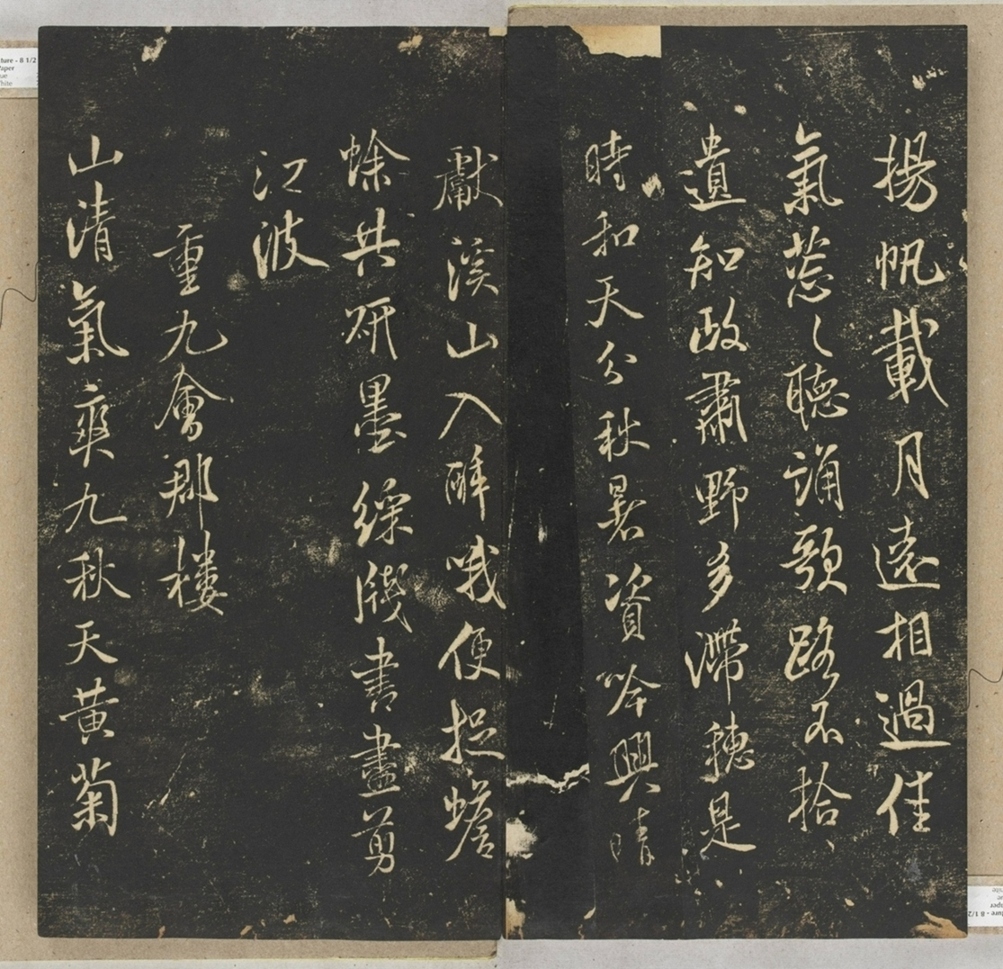 揚帆載月遠相過佳
氣葱〻聽誦歌路不拾
遺知政肅野多滯穗是
時和天分秋暑資吟興晴
獻溪山入醉哦便捉蟾
蜍共研墨綵牋書盡剪
江波
重九會郡樓
山清氣爽九秋天黃菊